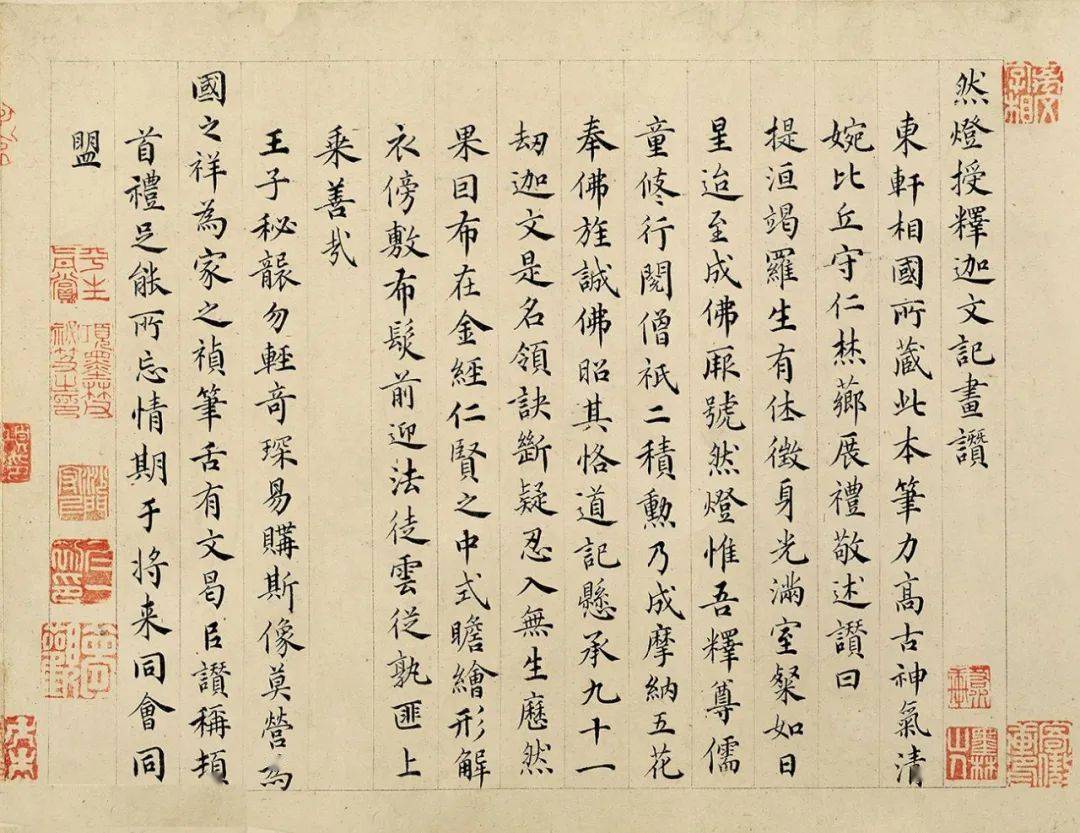 然燈授釋迦文記畫讚
東軒相國所藏此本筆力高古神氣清
婉比丘守仁爇薌展禮敬述讚曰
提洹竭羅生有休徵身光滿室粲如日
星迨至成佛厥號然燈惟吾釋尊儒
童修行閱僧祇二積勲乃成摩納五花
奉佛旌誠佛昭其恪道記懸承九十一
劫迦文是名領訣斷疑忍入無生歷然
果因布在金經仁賢之中式瞻繪形解
衣傍敷布髮前迎法徒雲從孰匪上
乘善哉
王子秘襲勿輕奇琛易購斯像莫營為
國之祥為家之禎筆舌有文曷臣讚稱頫
首禮足能所忘情期于将来同會同
盟